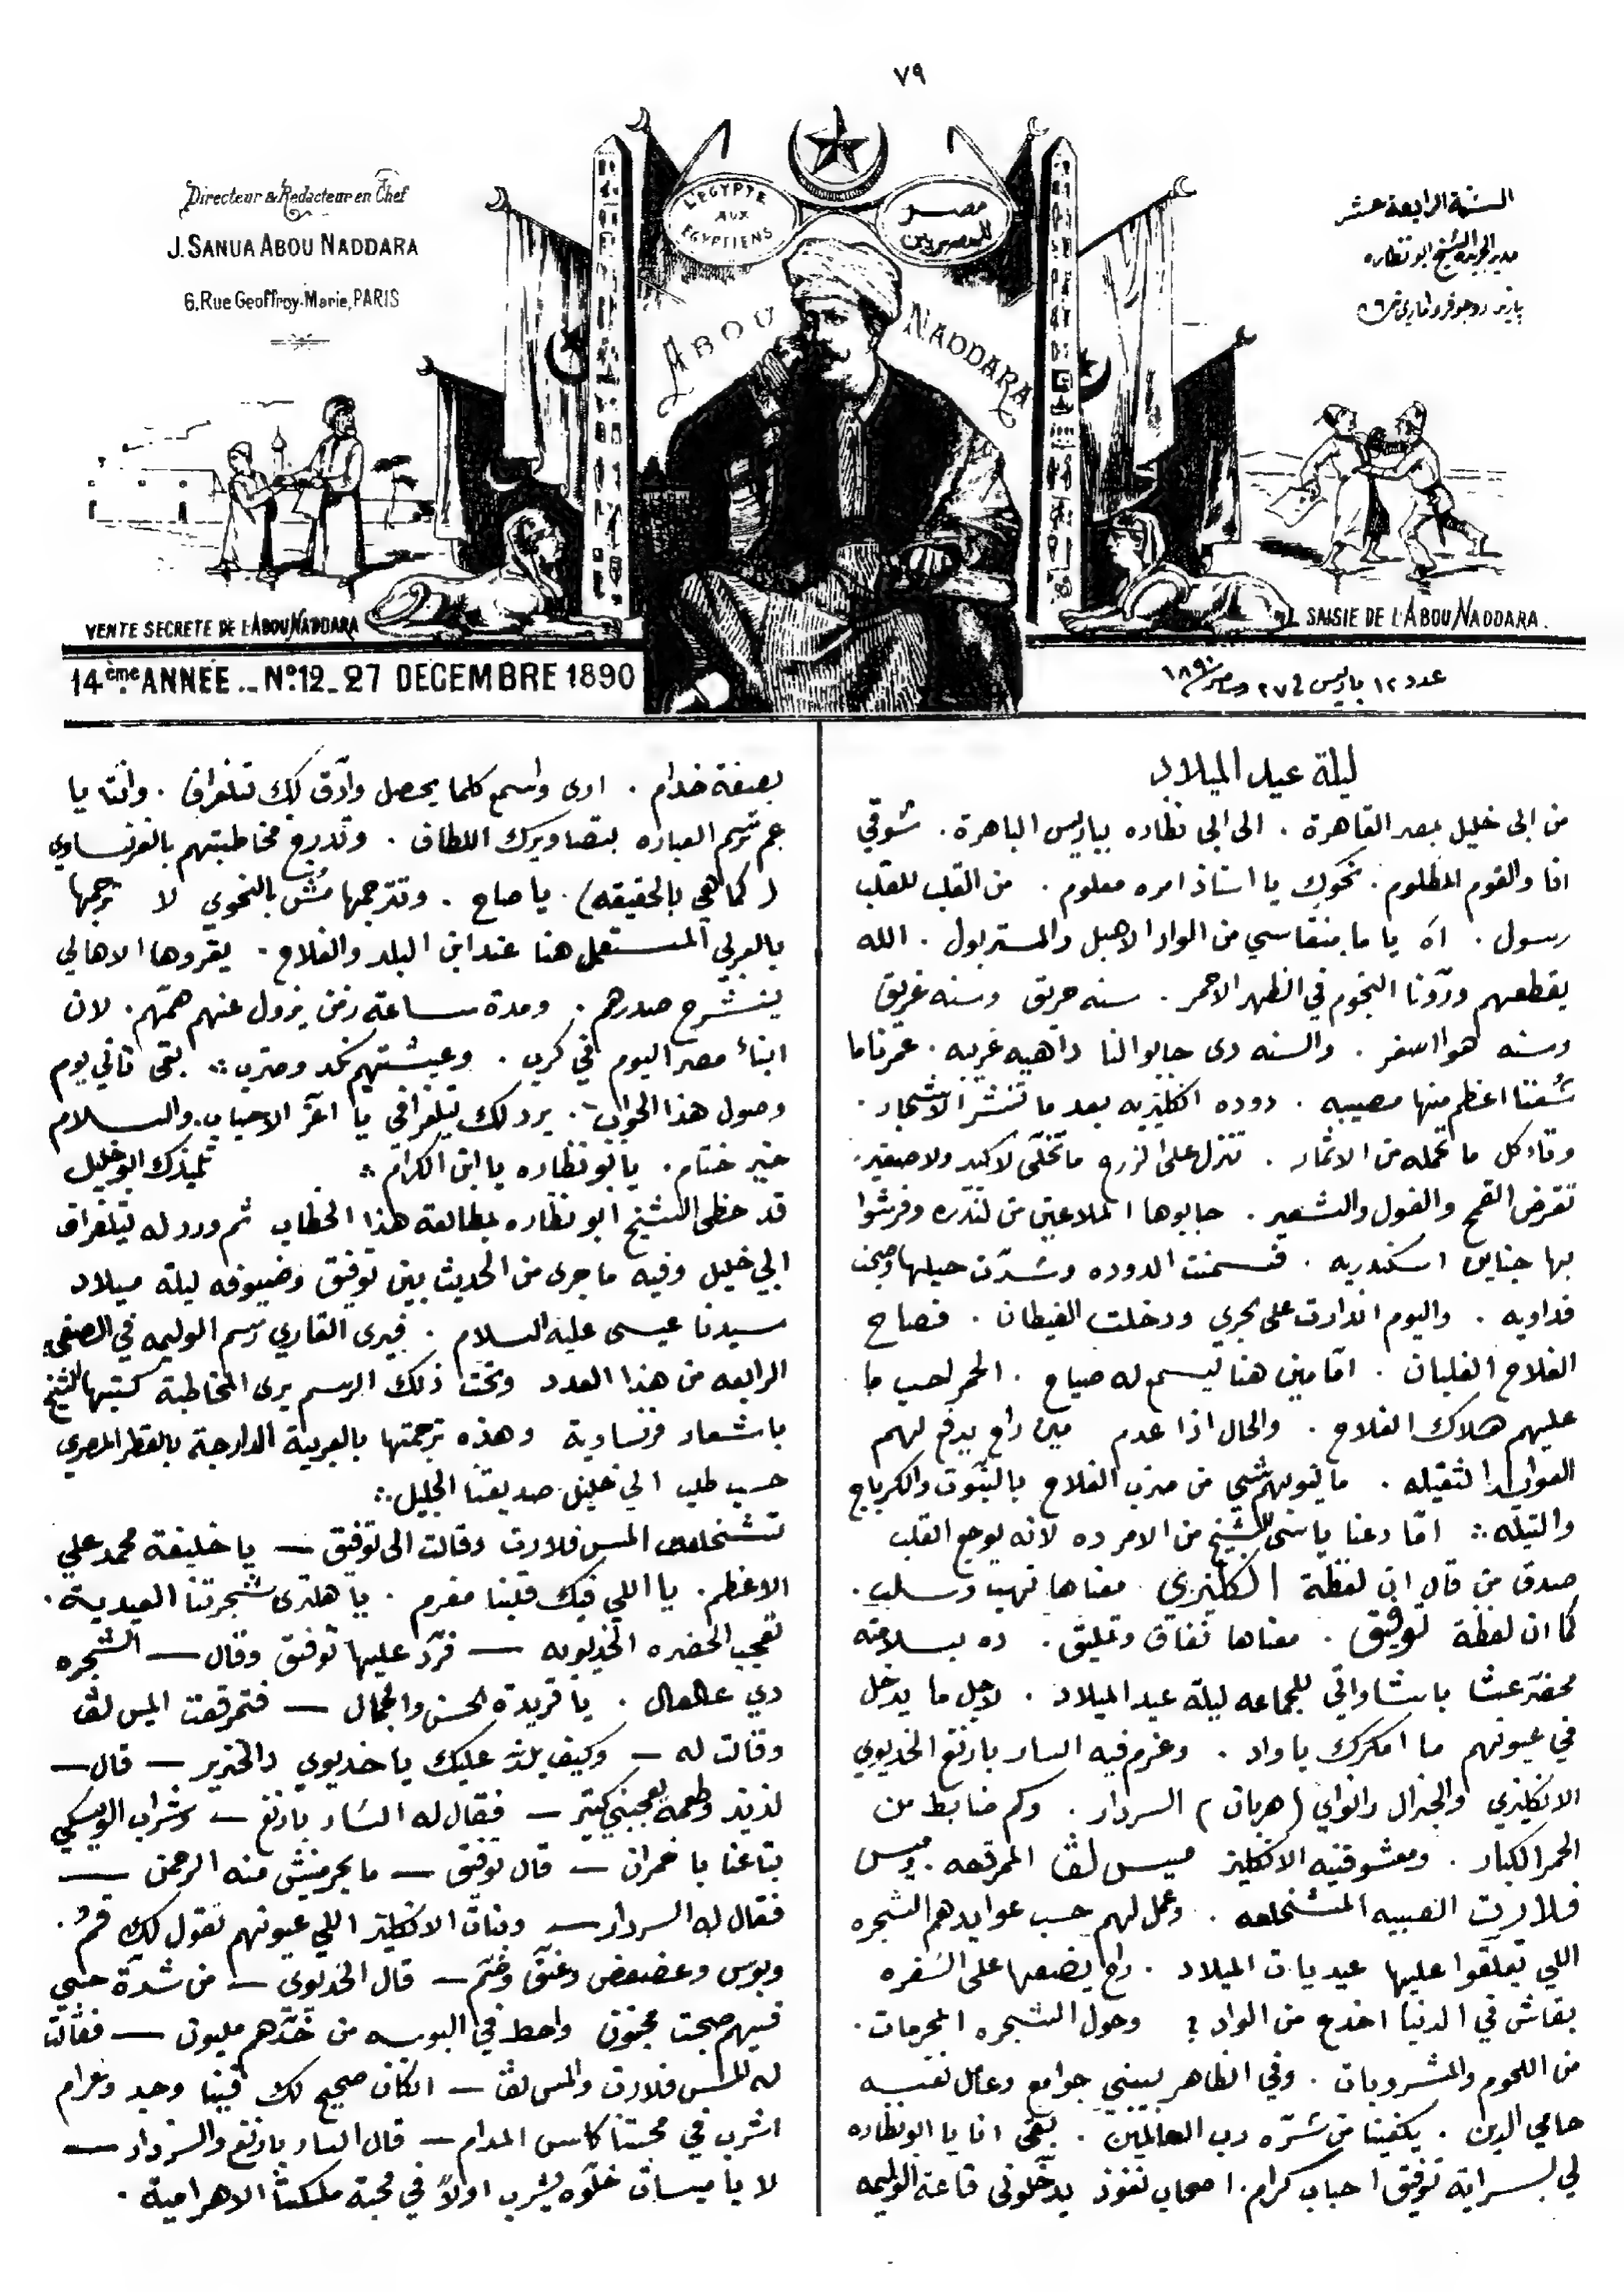 ٧٩
Directeur & Redacteur en Chef
J. SANUA ABOU NADDARA
6, Rue Geoffroy-Marie, PARIS
L'EGYPTE
AUX
EGYPTIENS
مصر
للمصريين
السنة الرابعة عشر
مدير الجريدة الشيخ ابو نظاره
ABOU NADDARA
VENTE SECRETE DE L'ABOU NADDARA
SAISIE DE L'ABOU NADDARA.
14ème ANNEE _ No. 12 _ 27 DECEMBRE 1890
عدد ١٢ باريس في ٢٧ دسامبر ١٨٩٠
ليلة عيد الميلاد
من ابي خليل بمصر القاهرة . الى ابي نظاره بباريس الباهرة . شوقي
انا والقوم المظلوم . نحوك يا استاذ امره معلوم . من القلب للقلب
رسول . اه يا ما بنقاسي من الواد الاهبل والمستر بول . الله
يقطعهم ورّونا النجوم في الظهر الاحمر . سنه حريق وسنه غريق
وسنه هوا اسفر . والسنه دى جابوا لنا داهيه غريبه . عمرنا ما
شفنا اعظم منها مصيبه . دوده انكليزيه بعد ما تنشر الاشجار .
وتاكل ما تحمله من الاثمار . تنزل على الزرع ما تخلّى لا كبير ولا صغير .
تقرض القمح والفول والشعير . جابوها الملاعين من لندره وفرشوا
بها جناين اسكندريه . فسمنت الدوده وشدّت حيلها وصبحت
فداويه . واليوم اندارت على بحري ودخلت الغيطان . فصاح
الفلاح الغلبان . امّا مين هنا ليسمع له صياح . الحمر احب ما
عليهم هلاك الفلاح . والحال اذا عدم مين راح يدفع لهم
العوايد الثقيله . ما ينوبهم شي من ضرب الفلاح بالنبّوت والكرباج
والتيله ∴ امّا دعنا ياسي الشيخ من الامر ده لانه يوجع القلب
صدق من قال ان لفظة انكليزي معناها نهيب وسلب .
كما ان لفظة توفيق . معناها نفاق وتمليق . ده بسلامته
محضر عشا باشاواتي للجماعه ليلة عيد الميلاد . لاجل ما يدخل
في عيونهم ما امكرك يا واد . وعزم فيه السار بارنغ الخديوي
الانكليزي والجنرال والواي (هربان) السردار . وكم ضابط من
الحمر الكبار . ومعشوقتيه الانكليز ميس لڤ المرقعه . وميس
فلارت الصبيه المشخلعه . وعمل لهم حسب عوايدهم الشجره
اللي تعلّقوا عليها عيديات الميلاد . راح يضعها على السفره
بقاش في الدنيا اخدع من الواد ? وحول الشجره المحرمات .
من اللحوم والمشروبات . وفي الظاهر يبني جوامع وعامل نفسه
حامي الدين . يكفينا من شرّه رب العالمين . بقى انا يا ابو نظاره
لي بسراية توفيق احباب كرام . اصحاب نفوذ يدخّلوني قاعة الوليمه
بصفة خدام . ارى واسمع كلما يحصل وادّق لك تلغرافا . وانتا يا
عم ترسم العباره بتصاويرك اللطاف . وتدرج مخاطبتهم بالفرنساوي
( كما هي بالحقيقه) . يا صاح . وتترجمها مش بالنحوي لا ترجمها
بالعربي المستعمل هنا عند ابن البلد والفلاح . يقروها الاهالي
ينشرح صدرهم . ومدة ساعة زمن يزول عنهم همّهم . لان
ابناء مصر اليوم في كرب . وعيشتهم نكد وضرب ∴ بقى تاني يوم
وصول هذا الجواب . يرد لك تلغرافي يا اعز الاحباب . والسلام
خير ختام . يا ابو نظاره يا ابن الكرام ∴ تلميذك ابو خليل
قد حظى الشيخ ابو نظاره بمطالعة هذا الخطاب ثم ورد له تلغراف
ابي خليل وفيه ما جرى من الحديث بين توفيق وضيوفه ليلة ميلاد
سيدنا عيسى عليه السلام . فيرى القاري رسم الوليمه في الصفحه
الرابعه من هذا العدد وتحت ذلك الرسم يرى المخاطبة كتبها الشيخ
باشعار فرنساوية وهذه ترجمتها بالعربية الدارجة بالقطر المصري
حسب طلب ابي خليل صديقنا الجليل ∴
تشخلعت المس فلارت وقالت الى توفيق — يا خليفة محمد علي
الاعظم . يا اللي فيك قلبنا مغرم . يا هلترى شجرتنا العيدية .
تعجب الحضره الخديويه — فردّ عليها توفيق وقال — الشجره
دي عالعال . يا فريدة الحسن والجمال — فتمرقعت الميس لڤ
وقالت له — وكيف يلذ عليك يا خديوي دا الخنزير — قال —
لذيذ وطعمه يعجبني كتير — فقال له السار بارنغ — وشراب الويسكي
بتاعنا يا خمران — قال توفيق — ما يحرمنيش منه الرحمن —
فقال له السردار — وبنات الانكليز اللي عيونهم تقول لك قمْ .
وبوس وعضعض وعنّق وضمّ — قال الخديوى — من شدّة حبي
فيهم صبحت مجنون واحط في البوسه من خدّهم مليون — فقالت
له المس فلارت والمس لڤ — انكان صحيح لك فينا وجد وغرام
اشرب في محبتنا كاس المدام — قال السار بارنغ والسردار —
لا يا ميسات خلّوه يشرب اولاً في محبة ملكتنا الاهرامية .